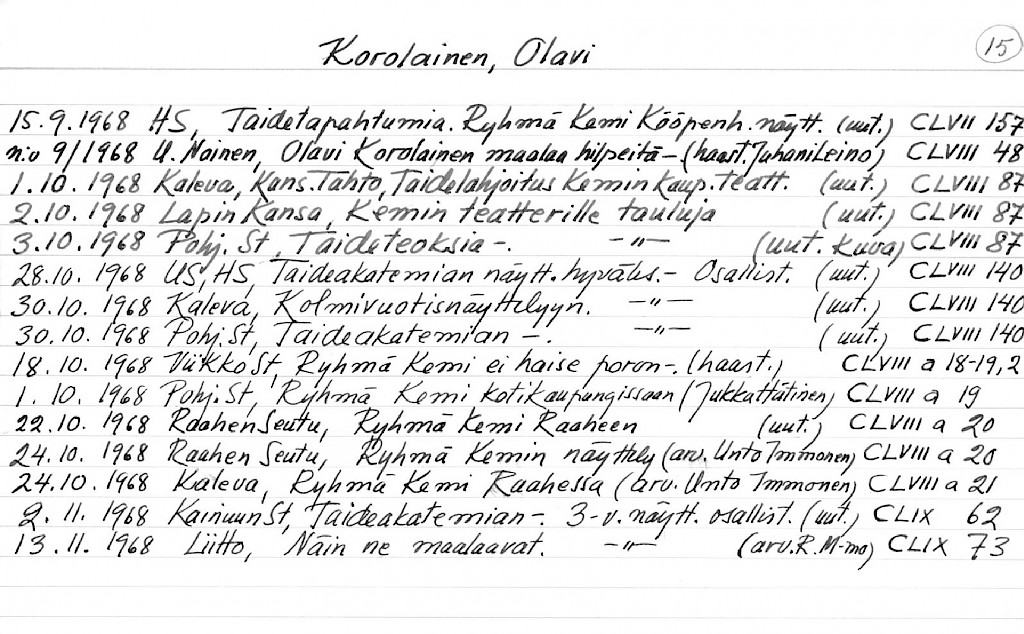 Korolainen, Olavi
15
15.9.1968 HS, Taidetapahtumia. Ryhmä Kemi Kööpenh. näytt. (uut.) CLVII 157
n:o 9/1968 U. Nainen, Olavi Korolainen maalaa hilpeitä - (haast. Juhani Leino) CLVIII 48
1.10.1968 Kaleva, Kans. Tahto, Taidelahjoitus Kemin kaup. teatt. (uut.) CLVIII 87
2.10.1968 Lapin Kansa, Kemin teatterille tauluja (uut.) CLVIII 87
3.10.1968 Pohj. St, Taideteoksia -. -"- (uut. kuva) CLVIII 87
28.10.1968 US, HS, Taideakatemian näytt. hyväks. - Osallist. (uut.) CLVIII 140
30.10.1968 Kaleva, Kolmivuotisnäyttelyyn. -"- (uut.) CLVIII 140
30.10.1968 Pohj. St, Taideakatemian -. -"- (uut.) CLVIII 140
18.10.1968 Viikko St, Ryhmä Kemi ei haise poron -. (haast.) CLVIII a 18-19, 2
1.10.1968 Pohj. St, Ryhmä Kemi kotikaupungissaan (Jukka CLVIII a 19
22.10.1968 Raahen Seutu, Ryhmä Kemi Raaheen (uut.) CLVIII a 20
24.10.1968 Raahen Seutu, Ryhmä Kemin näyttely (arv. Unto Immonen) CLVIII a 20
24.10.1968 Kaleva, Ryhmä Kemi Raahessa (arv. Unto Immonen) CLVIII a 21
2.11.1968 Kainuun St, Taideakatemian -. 3-v. näytt. osallist. (uut.) CLIX 62
13.11.1968 Liitto, Näin ne maalaavat. -"- (arv. R. M-mo) CLIX 73